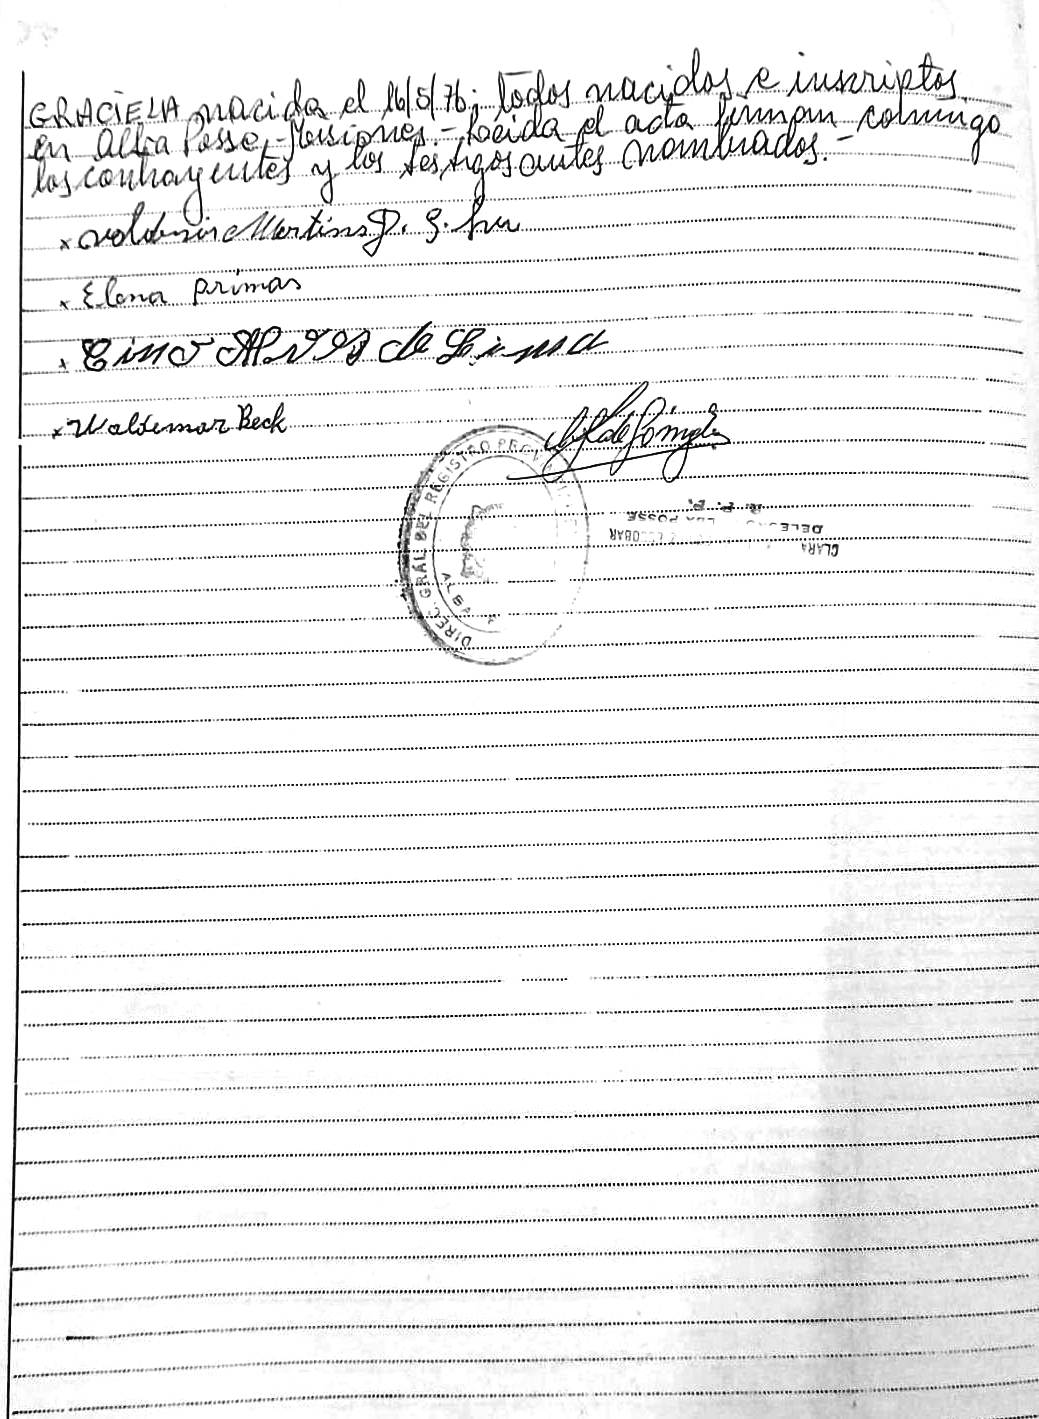 GRACIELA nacida el 16/5/76; todos nacidos e inscriptos
en Alba Posse, Misiones.- Leida el acta firman conmigo
los contrayentes y los testigos antes nombrados.-
x Valdenir Martins D. S.
x Elena primas
x Cino Alves de Lima
x Waldemar Beck
DIREC. GRAL DEL REGISTRO PROV
ALBA
CLARA ESCOBAR
DELEG POSSE
R. P. P.